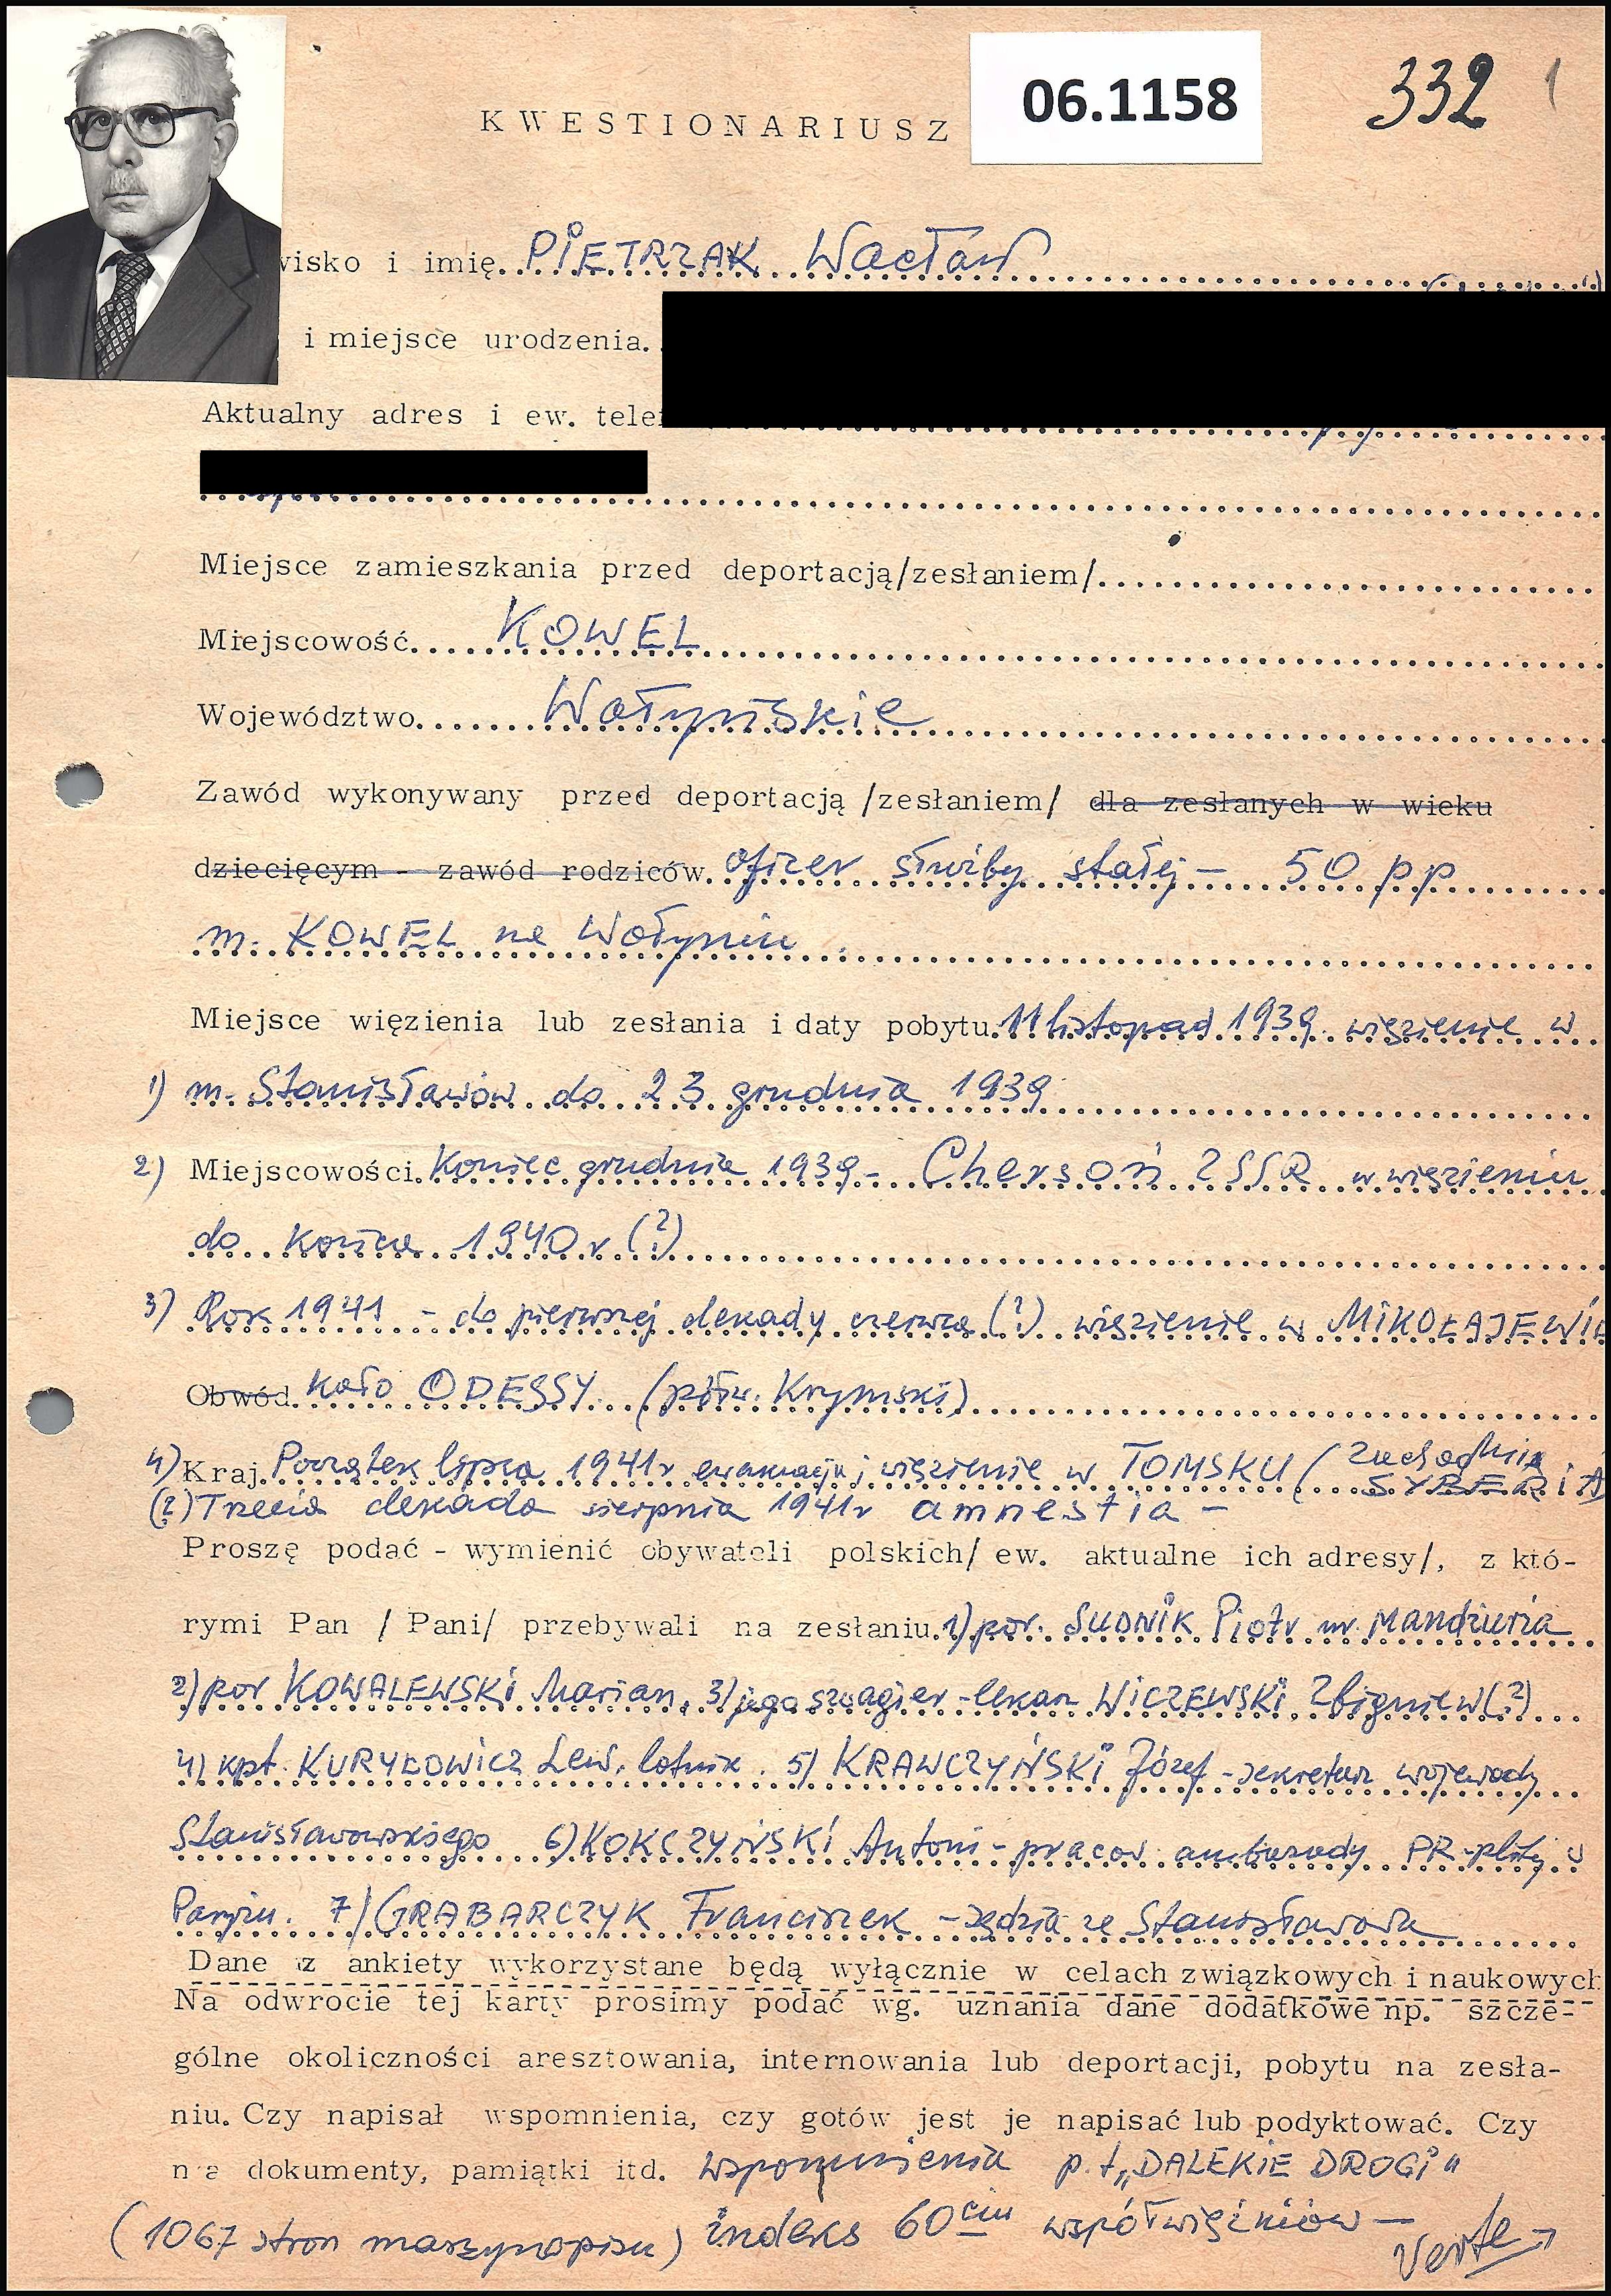 06.1158
332 1
KWESTIONARIUSZ
wisko i imię. PIETRZAK Wacław
i miejsce urodzenia.
Aktualny adres i ew. telef
Miejsce zamieszkania przed deportacją/zesłaniem/
Miejscowość KOWEL
Województwo Wołyńskie
Zawód wykonywany przed deportacją /zesłaniem/ dla zesłanych w wieku
dziecięcym - zawód rodziców. oficer służby stałej - 50 pp
m. KOWEL na Wołyniu.
Miejsce więzienia lub zesłania i daty pobytu. 11 listopad 1939. więzienie w
1) m. Stanisławów do 23 grudnia 1939
2) Miejscowości. Koniec grudnia 1939 - Chersoń ZSSR w więzieniu
do końca 1940 r (?)
3) Rok 1941 - do pierwszej dekady czerwca (?) więzienie w MIKOŁAJEWIE
Obwód koło ODESSY (półw. Krymski)
4) Kraj. Początek lipca 1941 r ewakuacja; więzienie w TOMSKU (zachodnia
SYBERIA
(?) Trzecia dekada sierpnia 1941 r amnestia -
Proszę podać - wymienić obywateli polskich/ ew. aktualne ich adresy/, z któ-
rymi Pan /Pani/ przebywali na zesłaniu. 1) por. SUDNIK Piotr ur. Mandżuria
2) por KOWALEWSKI Marian, 3) jego szwagier - lekarz WICZEWSKI Zbigniew (?)
4) kpt. KURYŁOWICZ Lew, lotnik. 5) KRAWCZYŃSKI Józef - sekretarz wojewody
Stanisławowskiego 6) KOKCZYŃSKI Antoni - pracow. ambasady PR-plitej w
Paryżu. 7) GRABARCZYK Franciszek - sędzia ze Stanisławowa
Dane z ankiety wykorzystane będą wyłącznie w celach związkowych i naukowych
Na odwrocie tej karty prosimy podać wg. uznania dane dodatkowe np. szcze-
gólne okoliczności aresztowania, internowania lub deportacji, pobytu na zesła-
niu. Czy napisał wspomnienia, czy gotów jest je napisać lub podyktować. Czy
ma dokumenty, pamiątki itd. wspomnienia p.t „DALEKIE DROGI"
(1067 stron maszynopisu) indeks 60ciu współwięźniów -
Verte →